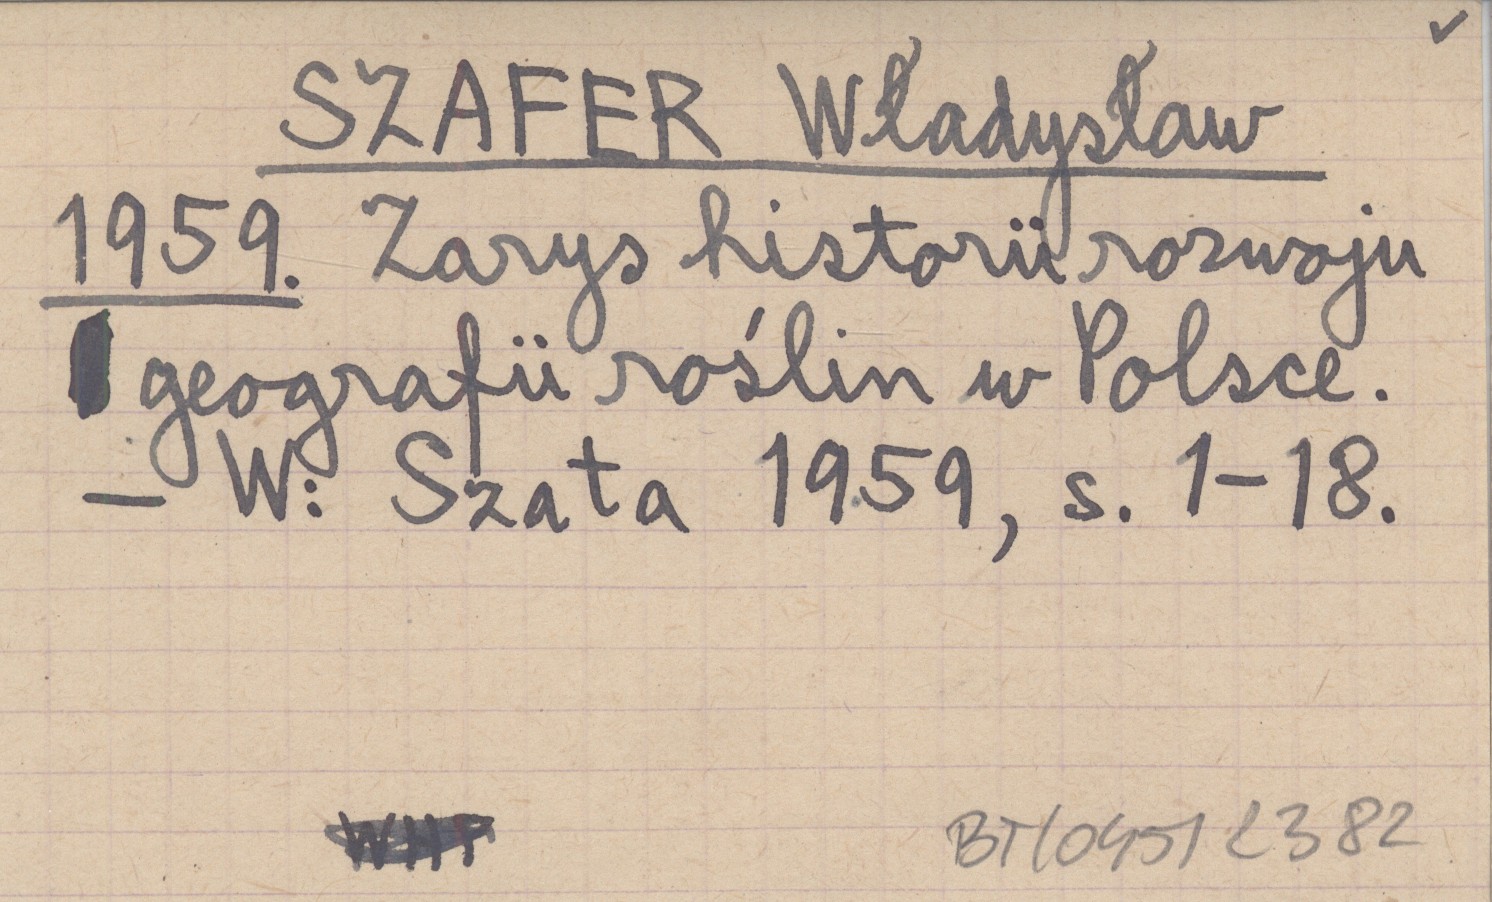 ✓
SZAFER Władysław
1959. Zarys historii rozwoju
geografii roślin w Polsce.
– W: Szata 1959, s. 1–18.
WHP
BT/0451 2382